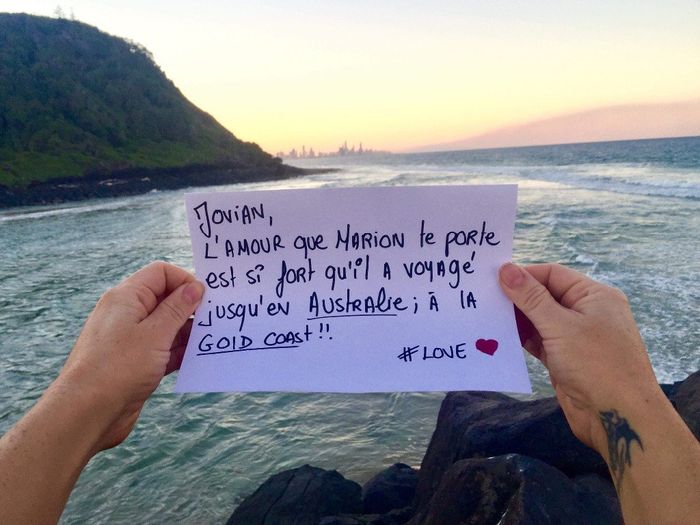 Jovian,
L'amour que Marion te porte
est si fort qu'il a voyagé
jusqu'en Australie; à la
Gold Coast!!
#LOVE ❤